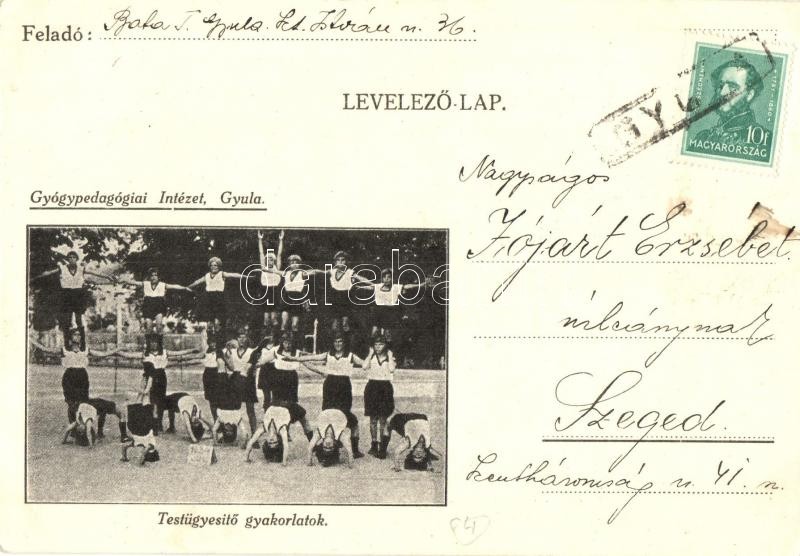 Feladó: Bata I. Gyula. Szt. István u. 36.
LEVELEZŐ-LAP.
SZÉCHENYI
10f
MAGYARORSZÁG
GYULA
Nagyságos
Gyógypedagógiai Intézet, Gyula.
Fójárt Erzsébet
úrleánynak
Szeged.
Szentháromság u. 41. n.
darabanth
Testügyesitő gyakorlatok.